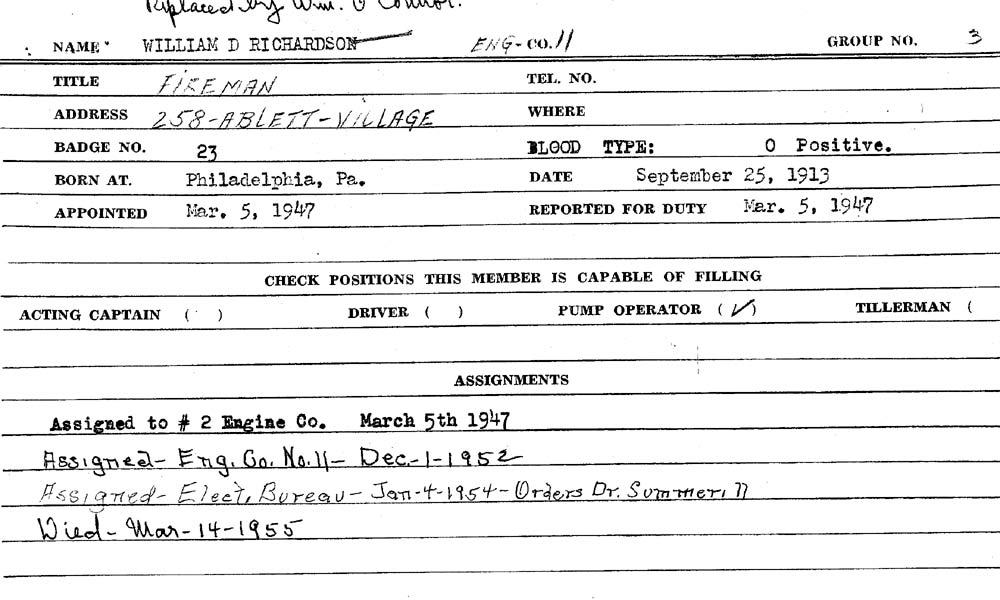 Replaced by Wm. O Connor.
NAME WILLIAM D RICHARDSON ENG-CO. 11 GROUP NO. 3
TITLE FIREMAN TEL. NO.
ADDRESS 258-ABLETT-VILLAGE WHERE
BADGE NO. 23 BLOOD TYPE: O Positive.
BORN AT. Philadelphia, Pa. DATE September 25, 1913
APPOINTED Mar. 5, 1947 REPORTED FOR DUTY Mar. 5, 1947
CHECK POSITIONS THIS MEMBER IS CAPABLE OF FILLING
ACTING CAPTAIN ( ) DRIVER ( ) PUMP OPERATOR (✓) TILLERMAN (
ASSIGNMENTS
Assigned to # 2 Engine Co. March 5th 1947
Assigned- Eng. Co. No. 11- Dec.-1-1952
Assigned- Elect. Bureau- Jan-4-1954- Orders Dr.
Died- Mar-14-1955